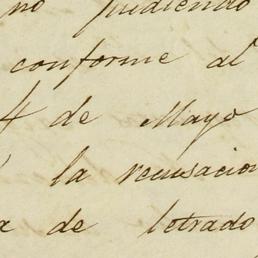 no pudiendo
conforme al
4 de Mayo
la recusacion
de letrado